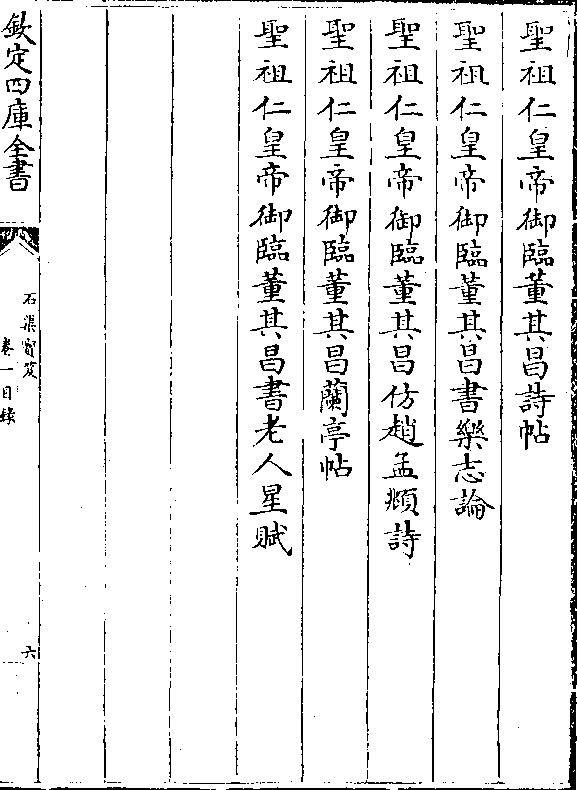 聖祖仁皇帝御臨董其昌詩帖
聖祖仁皇帝御臨董其昌書樂志論
聖祖仁皇帝御臨董其昌仿趙孟頫詩
聖祖仁皇帝御臨董其昌蘭亭帖
聖祖仁皇帝御臨董其昌書老人星賦
欽定四庫全書
石渠寶笈
卷一目錄
六